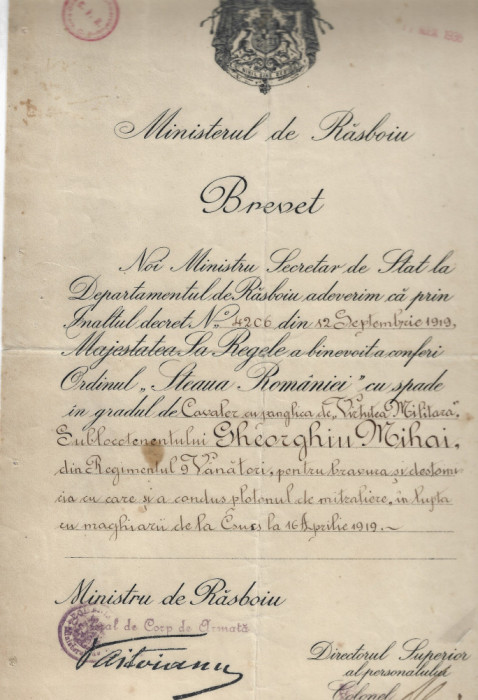 Ministerul de Răsboiu
Brevet
Noi Ministru Secretar de Stat la
Departamentul de Răsboiu, adeverim că prin
Inaltul decret No. 4206 din 12 Septembrie 1919,
Majestatea Sa Regele a binevoit a conferi
Ordinul „Steaua României” cu spade
in gradul de Cavaler cu panglica de „Virtutea Militară”,
Sublocotenentului Gheorghiu Mihai,
din Regimentul 9 Vânători, pentru bravura și destoini-
cia cu care și-a condus plotonul de mitraliere, in lupta
cu maghiarii de la 16 Aprilie 1919.
Ministru de Răsboiu
General de Corp de Armată
Directorul Superior
al personalului
Colonel